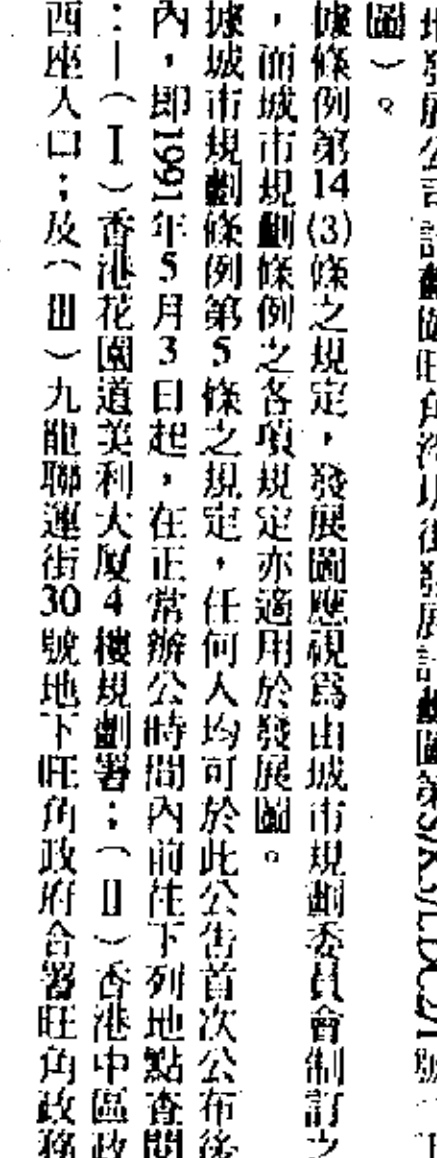 發展公司計劃的旺角洗衣街發展計劃圖第S/K3/LDC2/1號（下
圖）。
據條例第14(3)條之規定，發展圖應視為由城市規劃委員會制訂之
，而城市規劃條例之各項規定亦適用於發展圖。
據城市規劃條例第5條之規定，任何人均可於此公告首次公布後
內，即1991年5月3日起，在正常辦公時間內前往下列地點查閱
：—（I）香港花園道美利大廈4樓規劃署；（II）香港中區政
西座入口；及（III）九龍聯運街30號地下旺角政府合署旺角政務